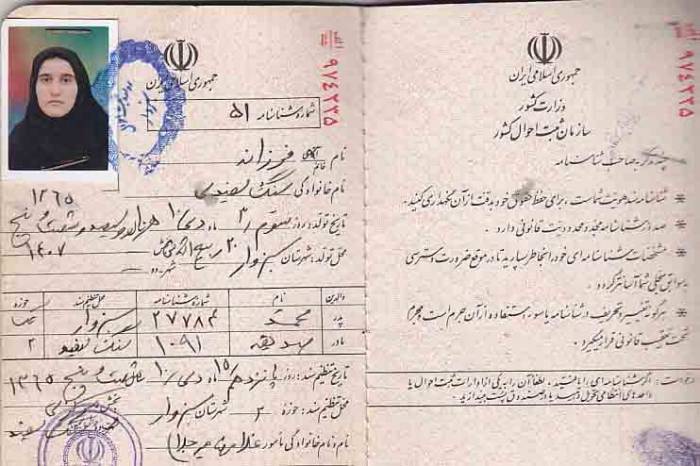 جمهوری اسلامی ایران
شماره شناسنامه ۵۱
نام آقای خانم فرزانه
نام خانوادگی سنگ سفیدی
۱۳۶۵
تاریخ تولد: روز سوم ۳/ ماه دی ۱۰/ هزار و سیصد و شصت و پنج
محل تولد: شهرستان سبزوار ۲۰ ربیع الثانی ۱۴۰۷
والدین نام شماره شناسنامه محل تنظیم سند حوزه
پدر محمد ۲۷۷۸۴ سبزوار
مادر صدیقه ۱۰۹۱ سنگ سفید ۲
تاریخ تنظیم سند: روز پانزدهم ۱۵/ ماه دی ۱۰/ شصت و پنج ۱۳۶۵
محل تنظیم سند: حوزه ۲ شهرستان سبزوار بخش
نام و نام خانوادگی مامور غلامرضا
۹۷۴۲۲۵
جمهوری اسلامی ایران
وزارت کشور
سازمان ثبت احوال کشور
چند تذکر به صاحب شناسنامه
* شناسنامه سند هویت شماست، برای حفظ حقوق خود به دقت از آن نگهداری کنید.
* صدور شناسنامه مجدد محدودیت قانونی دارد.
* مشخصات شناسنامه‌ای خود را بخاطر بسپارید تا در موقع ضرورت دسترسی
به سوابق سجلی شما آسانتر گردد.
* هرگونه تغییر و تحریف در شناسنامه یا سوء استفاده از آن جرم است و مجرم
تحت تعقیب قانونی قرار میگیرد.
درخواست: اگر شناسنامه‌ای را یافتید، لطفاً آن را به یکی از ادارات ثبت احوال یا
واحدهای انتظامی تحویل دهید یا در صندوق پست بیندازید.
۹۷۴۲۲۵